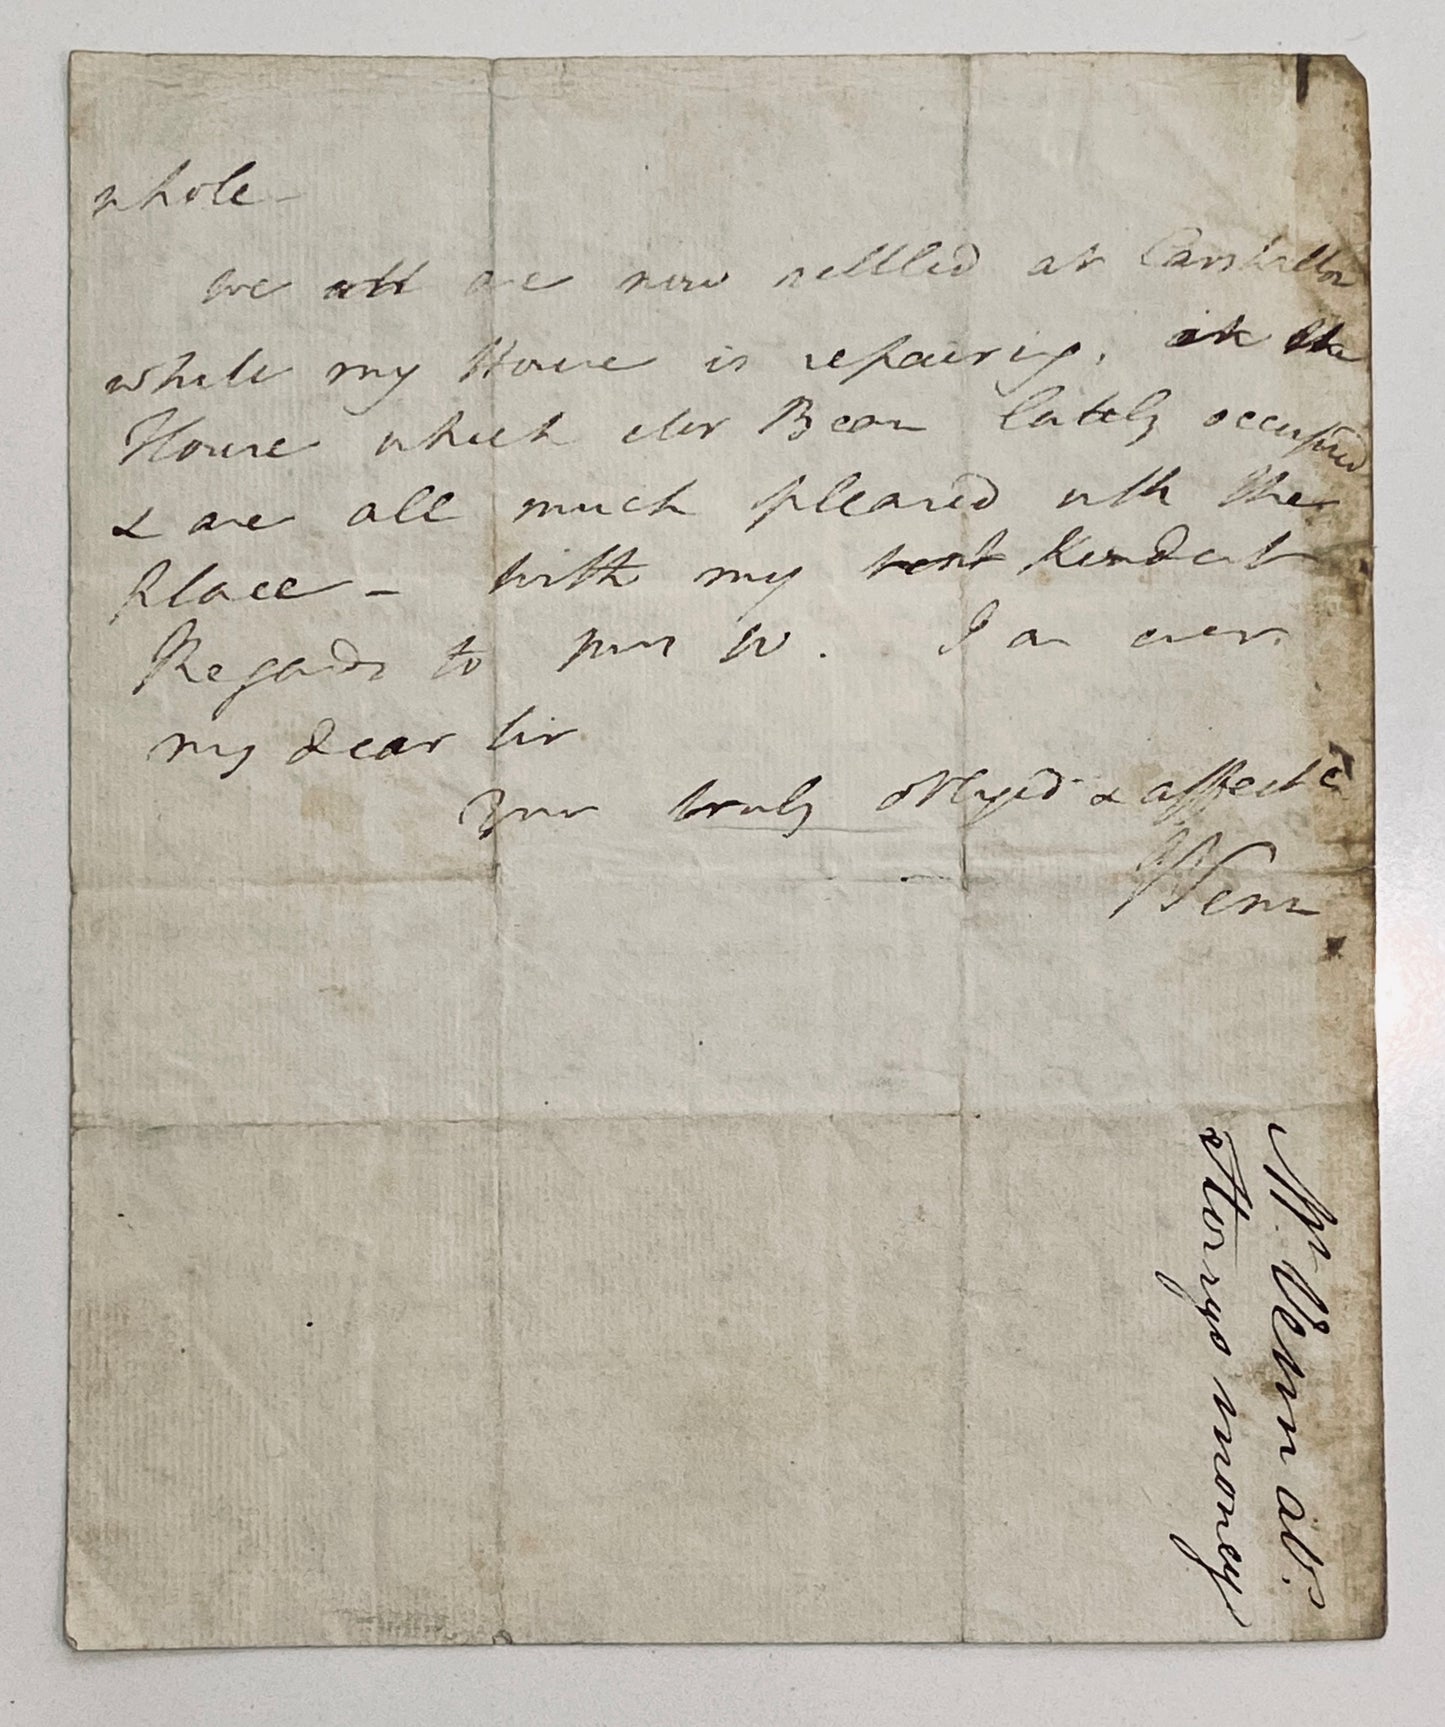 whole -
we all are now settled at Carshalton
while my House is repairing, in the
House which Mr Bean lately occupied
& are all much pleased with the
Place - with my best Kindest
Regards to Mrs W. I am ever
my dear Sir
Your truly obliged & affecte
JVenn
Mr. Venn abt.
Storys money